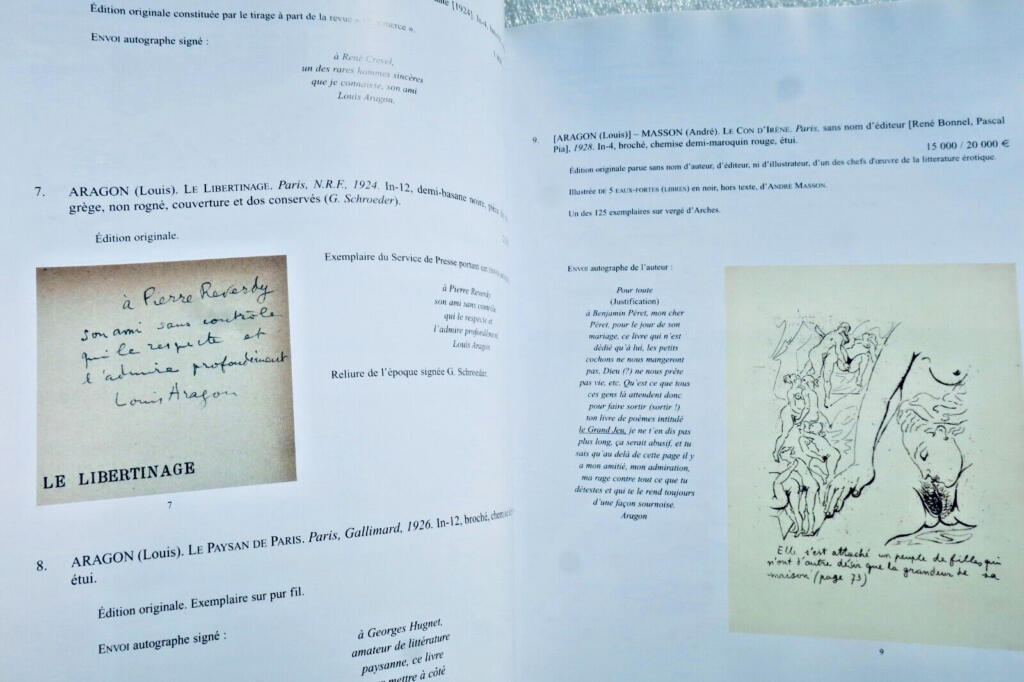 [1924]. In-4,
Édition originale constituée par le tirage à part de la revue «
ENVOI autographe signé :
à René Crevel,
un des rares hommes sincères
que je connaisse, son ami
Louis Aragon.
7. ARAGON (Louis). LE LIBERTINAGE. Paris, N.R.F., 1924. In-12, demi-basane noire,
grège, non rogné, couverture et dos conservés (G. Schroeder).
Édition originale.
Exemplaire du Service de Presse portant cet
à Pierre Reverdy
son ami sans contrôle
qui le respecte et
l'admire profondément
Louis Aragon
Reliure de l'époque signée G. Schroeder.
à Pierre Reverdy
son ami sans contrôle
qui le respecte et
l'admire profondément
Louis Aragon
LE LIBERTINAGE
7
8. ARAGON (Louis). LE PAYSAN DE PARIS. Paris, Gallimard, 1926. In-12, broché,
étui.
Édition originale. Exemplaire sur pur fil.
ENVOI autographe signé :
à Georges Hugnet,
amateur de littérature
paysanne, ce livre
mettre à côté
9. [ARAGON (Louis)] – MASSON (André). LE CON D'IRÈNE. Paris, sans nom d'éditeur [René Bonnel, Pascal
Pia], 1928. In-4, broché, chemise demi-maroquin rouge, étui.
15 000 / 20 000 €
Édition originale parue sans nom d'auteur, d'éditeur, ni d'illustrateur, d'un des chefs d'œuvre de la litterature érotique.
Illustrée DE 5 EAUX-FORTES (LIBRES) en noir, hors texte, d'ANDRÉ MASSON.
Un des 125 exemplaires sur vergé d'Arches.
ENVOI autographe de l'auteur :
Pour toute
(Justification)
à Benjamin Péret, mon cher
Péret, pour le jour de son
mariage, ce livre qui n'est
dédié qu'à lui, les petits
cochons ne nous mangeront
pas, Dieu (?) ne nous prête
pas vie, etc. Qu'est ce que tous
ces gens là attendent donc
pour faire sortir (sortir !)
ton livre de poèmes intitulé
le Grand Jeu, je ne t'en dis pas
plus long, ça serait abusif, et tu
sais qu'au delà de cette page il y
a mon amitié, mon admiration,
ma rage contre tout ce que tu
détestes et qui te le rend toujours
d'une façon sournoise.
Aragon
Elle s'est attaché un peuple de filles qui
n'ont d'autre désir que la grandeur de sa
maison (page 73)
9